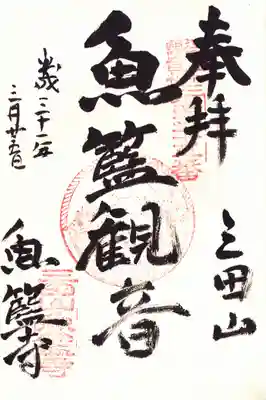 奉拝
三田山
魚籃観音
平成三十一年
三月廿五日
魚籃寺